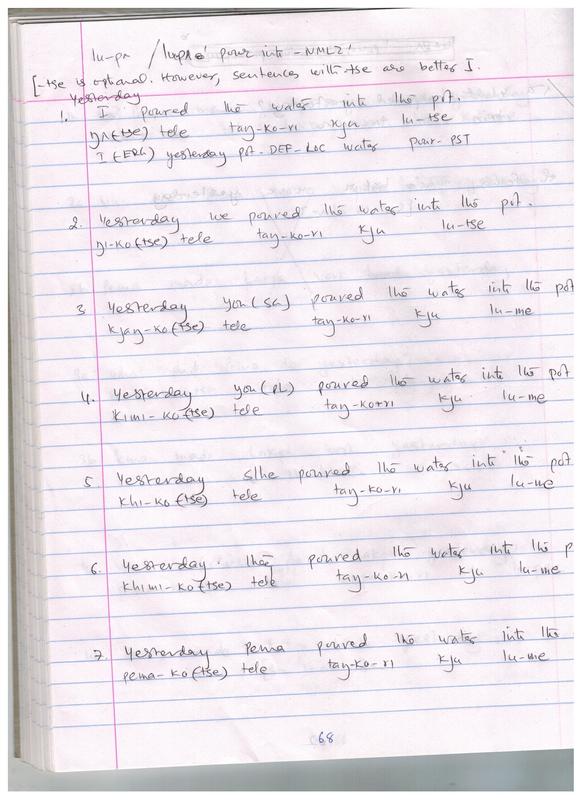 lu-pʌ / lupʌ 'pour into -NMLZ'
[-tse is optional. However, sentences with -tse are better].
Yesterday
1. I poured the water into the pot.
ŋʌ(tse) tele taŋ-ko-ri kju lu-tse
I (ERG) yesterday pot-DEF-LOC water pour-PST
2. Yesterday we poured the water into the pot.
ŋi-ko(tse) tele taŋ-ko-ri kju lu-tse
3. Yesterday you(SG) poured the water into the pot
kjaŋ-ko(tse) tele taŋ-ko-ri kju lu-me
4. Yesterday you(PL) poured the water into the pot
kimi-ko(tse) tele taŋ-ko-ri kju lu-me
5. Yesterday s/he poured the water into the pot
khi-ko(tse) tele taŋ-ko-ri kju lu-me
6. Yesterday they poured the water into the p
khimi-ko(tse) tele taŋ-ko-ri kju lu-me
7. Yesterday Pema poured the water into the
pema-ko(tse) tele taŋ-ko-ri kju lu-me
68